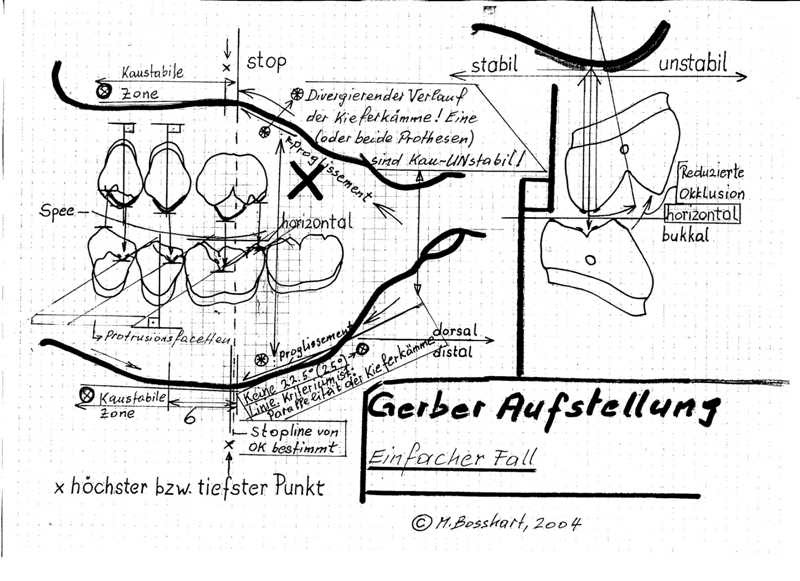 stop
Kaustabile
Zone
x
stabil
unstabil
Divergierender Verlauf
der Kieferkämme! Eine
(oder beide Prothesen)
sind Kau-UNstabil!
Proglissement
Spee
horizontal
Reduzierte
Okklusion
horizontal
bukkal
Protrusionsfacetten
Proglissement
dorsal
distal
Keine 22.5° (25°)
Linie. Kriterium ist:
Parallelität der Kieferkämme
Kaustabile
Zone
6
Stopline von
OK bestimmt
x
x höchster bzw. tiefster Punkt
Gerber Aufstellung
Einfacher Fall
© M. Bosshart, 2004